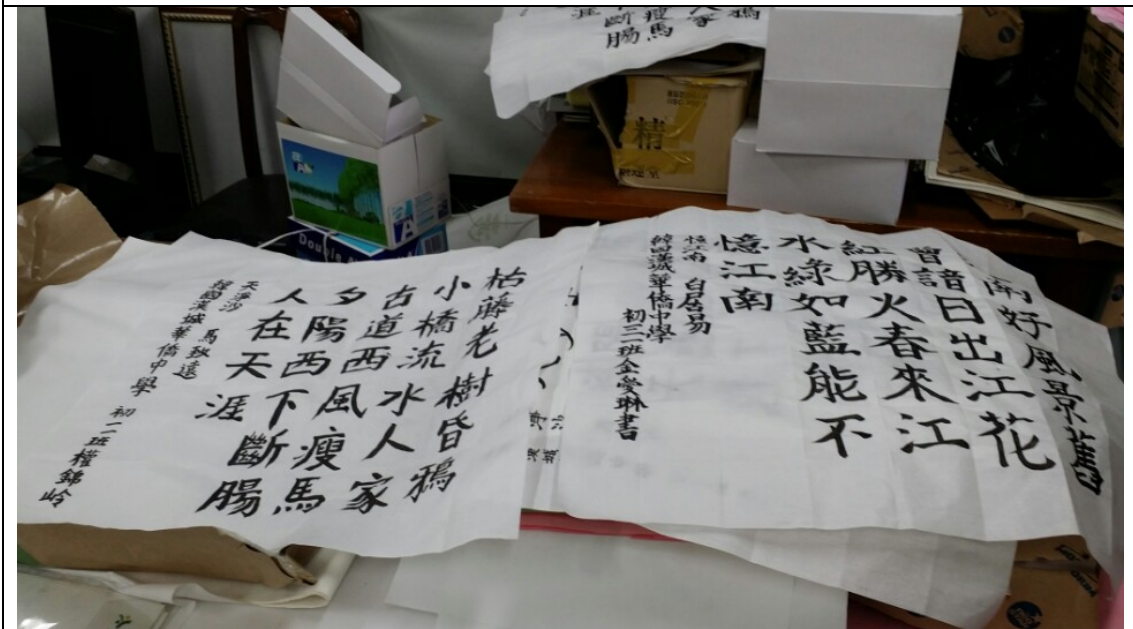 鴉
人家
瘦馬
斷腸
涯
精
Double
A
南好風景舊
曾諳日出江花
紅勝火春來江
水綠如藍能不
憶江南
憶江南 白居易
韓国漢城華僑中學
初三一班金愛琳書
枯藤老樹昏鴉
小橋流水人家
古道西風瘦馬
夕陽西下斷腸
人在天涯
天淨沙 馬致遠
韓國漢城華僑中學 初二班權錦岭